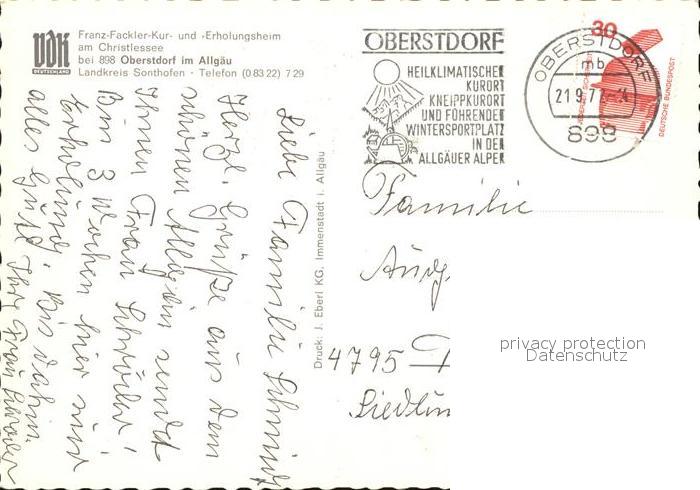 VDK
DEUTSCHLAND
Franz-Fackler-Kur- und -Erholungsheim
am Christlessee
bei 898 Oberstdorf im Allgäu
Landkreis Sonthofen · Telefon (0 83 22) 7 29
OBERSTDORF
HEILKLIMATISCHER
KURORT
KNEIPPKURORT
UND FÜHRENDER
WINTERSPORTPLATZ
IN DEN
ALLGÄUER ALPEN
OBERSTDORF
mb
898
30
DEUTSCHE BUNDESPOST
Liebe Familie Schmidt
Herzl. Grüße aus dem
schönen Allgäu sendet
Ihnen Frau Schröder!
Bin 3 Wochen hier zur
Erholung. Bis dahin
alles Gute Ihre Frau Schröder
Druck: J. Eberl KG, Immenstadt i. Allgäu
Familie
4795
privacy protection
Datenschutz